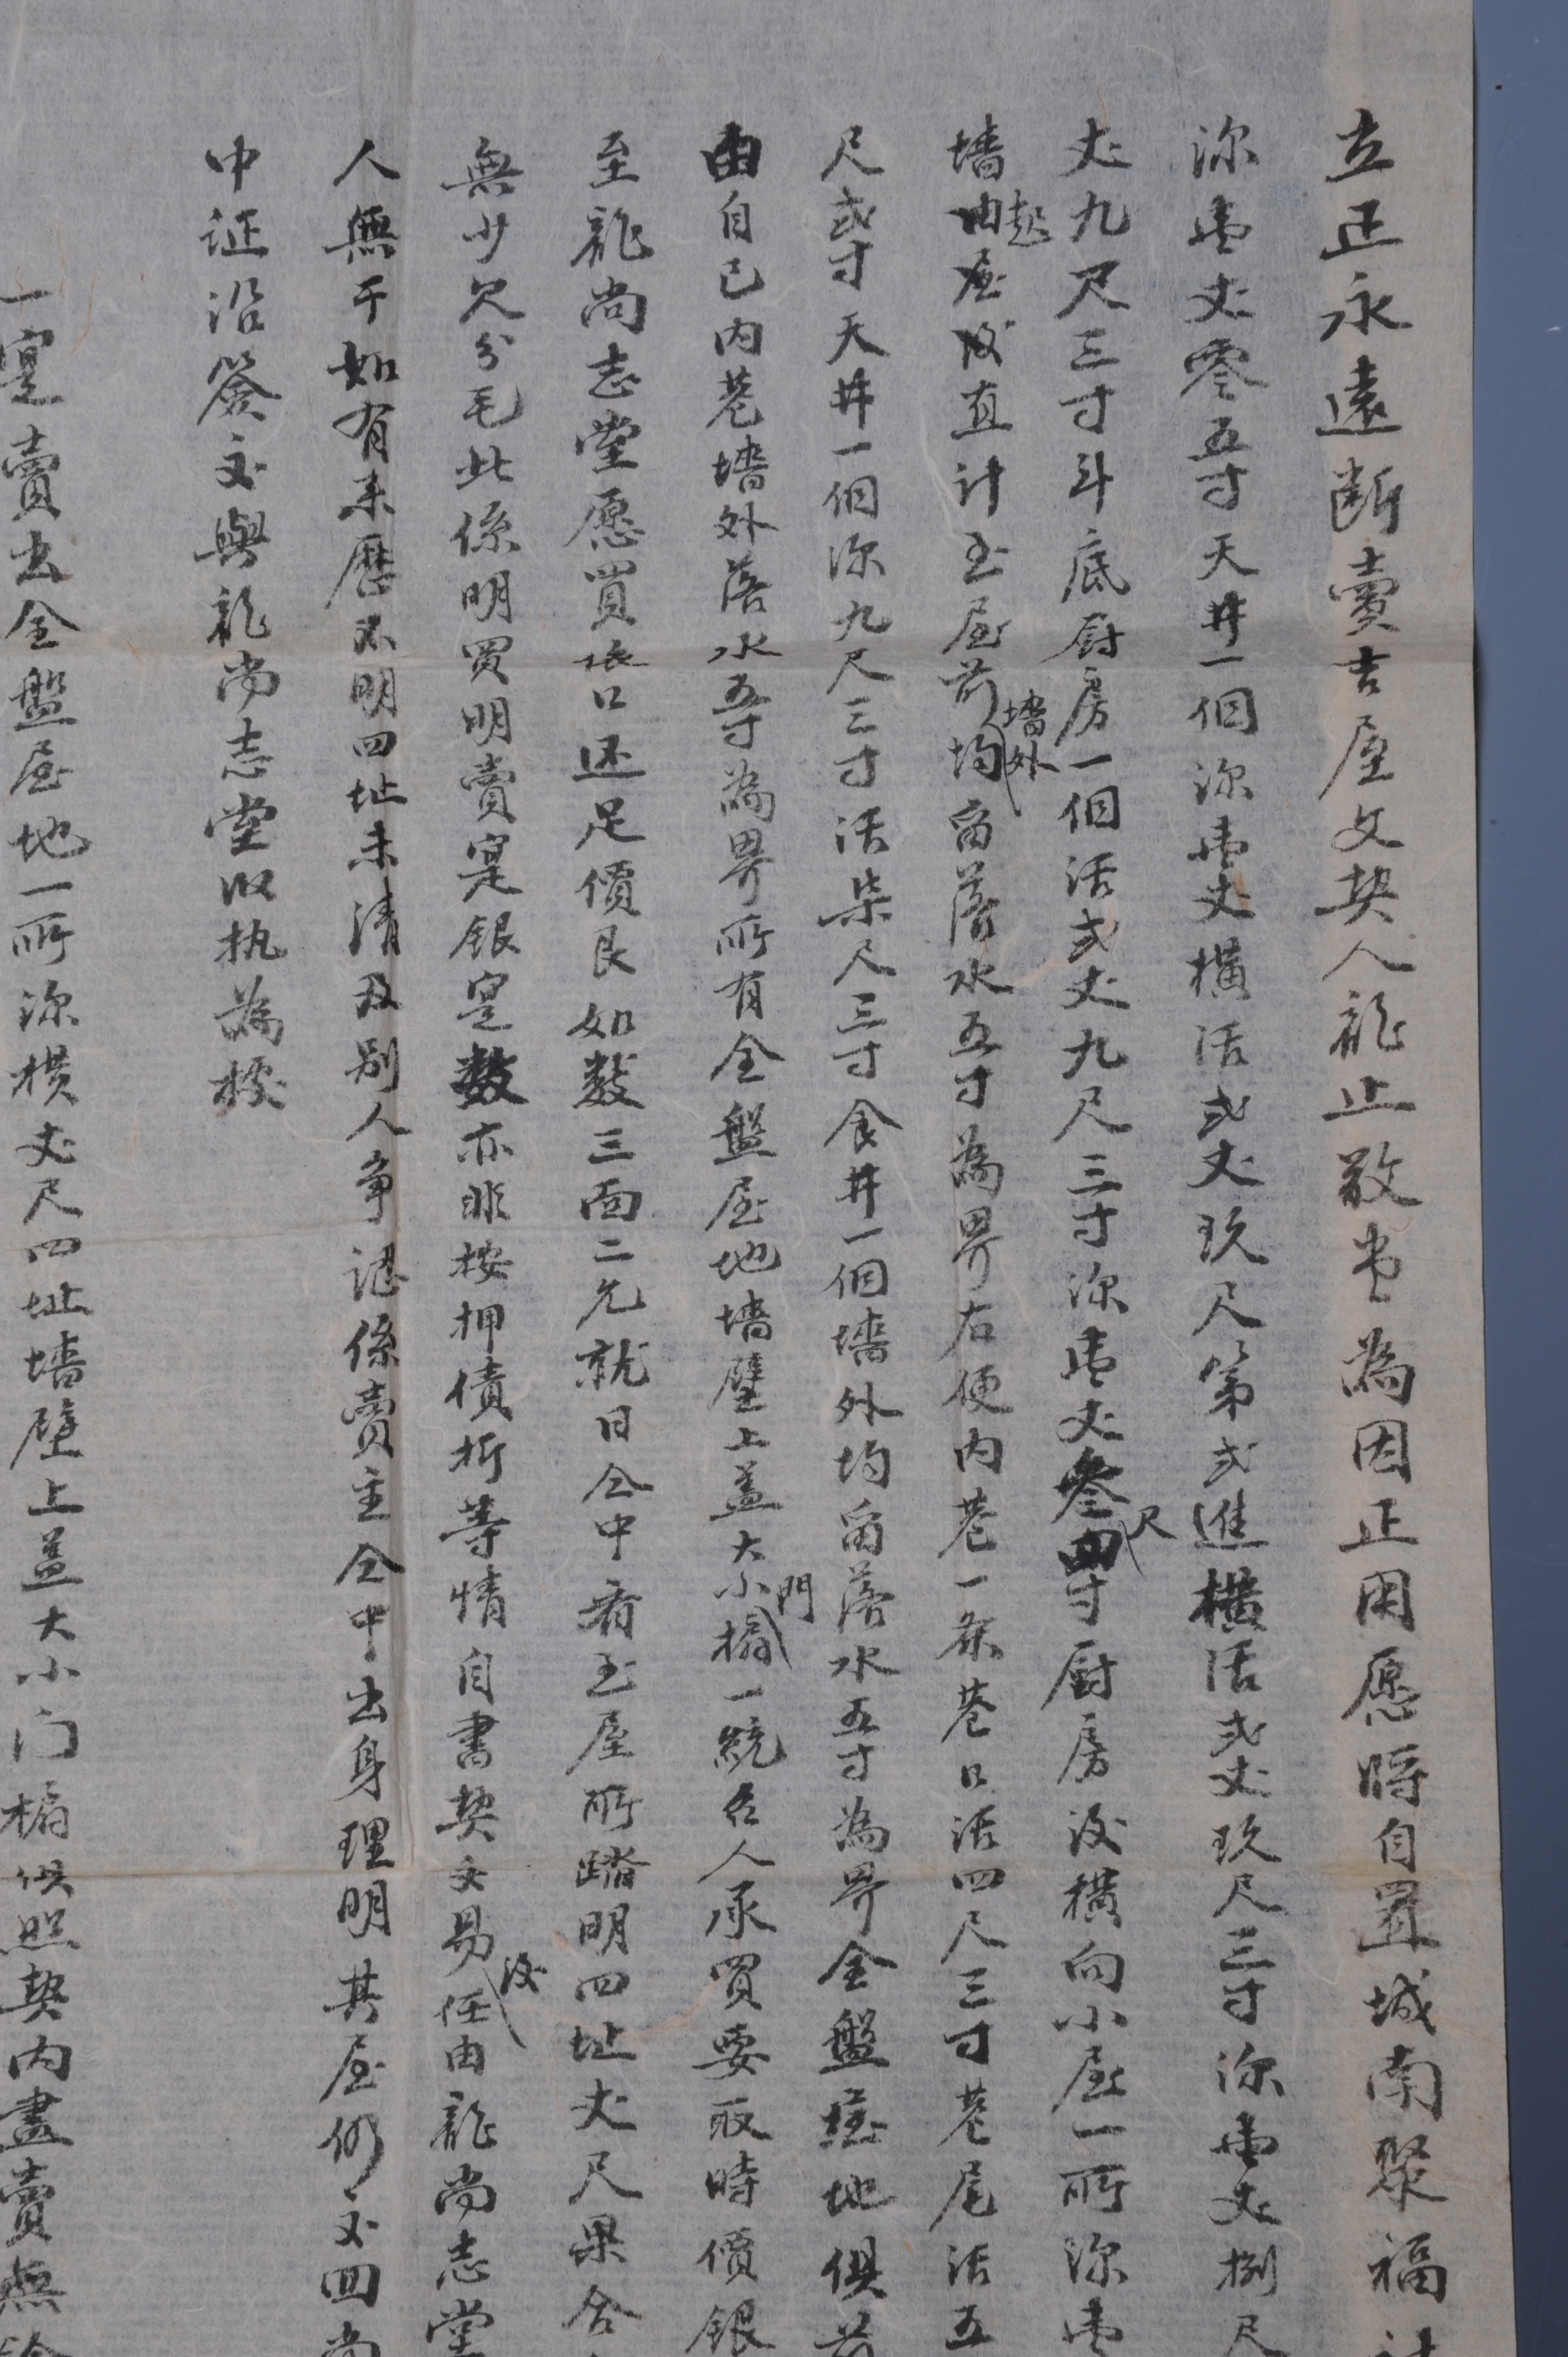 立正永遠断賣吉屋文契人龍止敬堂為因正用愿将自置城南聚福
深壹丈零五寸天井一個深壹丈横活弍丈玖尺第弍進横活弍丈玖尺三寸深壹丈捌尺
丈九尺三寸斗底厨房一個活弍丈九尺三寸深壹丈叁尺四寸厨房後横向小屋一所深壹
墙起由屋後直計至屋前墙外均留落水五寸為界右便内巷一条巷口活四尺三寸巷尾活五
尺弍寸天井一個深九尺三寸活柒尺三寸食井一個墙外均留落水五寸為界全盤屋地俱前
由自己内巷墙外落水五寸為界所有全盤屋地墙壁上盖大小門搧一統召人承買要取時價銀
至龍尚志堂愿買依口还足價艮如数三面二允就日仝中看至屋所踏明四址丈尺果合
無少欠分毛此係明買明賣寔銀寔数亦非按押債折等情自書契交易後任由龍尚志堂
人無干如有来歷不明四址未清及别人争認係賣主仝中出身理明其屋仍交回尚
中証沿簽交與龍尚志堂收执為據
一寔賣出全盤屋地一所深横丈尺四址墙壁上盖大小门楄俱照契内盡賣無